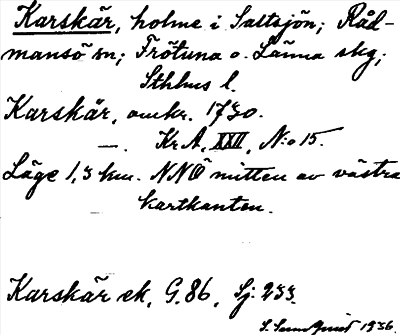 Karskär, holme i Saltsjön; Råd-
mansö sn; Frötuna o. Länna skg;
Sthlms l.
Karskär, omkr. 1730.
—. Kr A, XXII, N:o 15.
Läge 1,3 km. NNÖ mitten av västra
kartkanten.
Karskär ek, G. 86, Sj. 233.
S. Sundquist 1936.